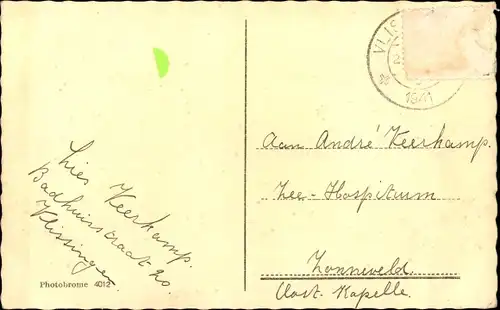 Lies Keerkamp.
Badhuisstraat 20
Vlissingen.
Photobrome 4012
VLIS
1941
Aan André Keerkamp.
Zee-Hospitium
Zonneveld.
Oost-Kapelle.